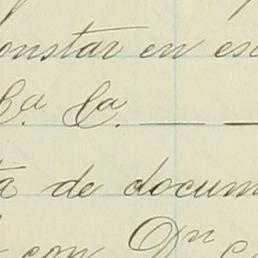 onstar en es
C.ª Ca. — —
ta de docum
con Dn